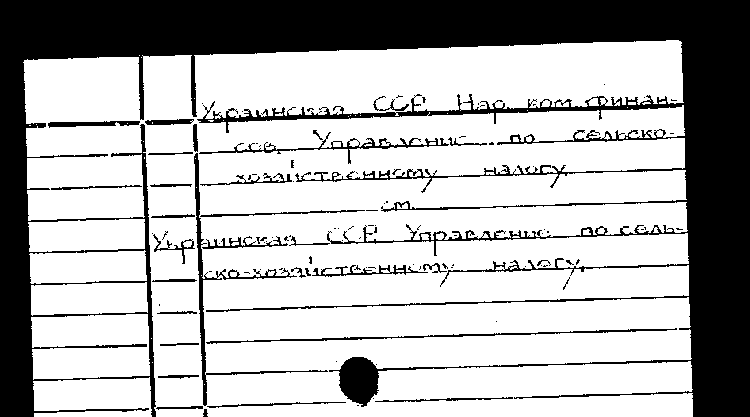 Украинская ССР. Нар. ком. финан-
сов. Управление по сельско-
хозяйственному налогу.
см.
Украинская ССР. Управление по сель-
ско-хозяйственному налогу.